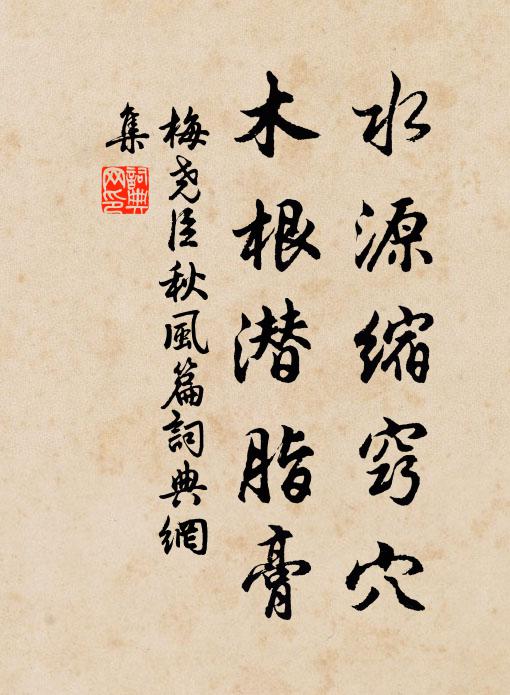 水源缩窍穴
木根潜脂膏
梅尧臣秋風篇詞典網
集
詞典网印